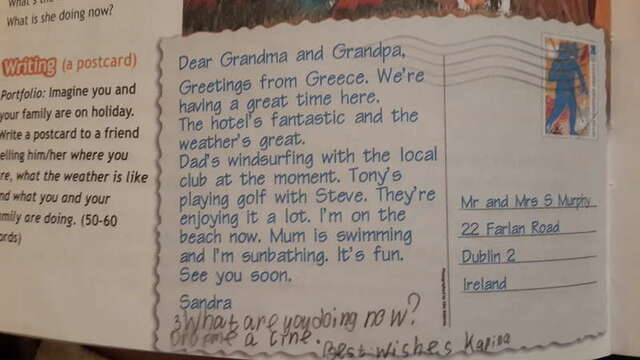 What is she doing now?
Writing (a postcard)
Portfolio: Imagine you and
your family are on holiday.
Write a postcard to a friend
telling him/her where you
are, what the weather is like
and what you and your
family are doing. (50-60
words)
Dear Grandma and Grandpa,
Greetings from Greece. We're
having a great time here.
The hotel's fantastic and the
weather's great.
Dad's windsurfing with the local
club at the moment. Tony's
playing golf with Steve. They're
enjoying it a lot. I'm on the
beach now. Mum is swimming
and I'm sunbathing. It's fun.
See you soon.
Sandra
Mr and Mrs S Murphy
22 Farlan Road
Dublin 2
Ireland
What are you doing now?
me a line.
Best wishes Karina